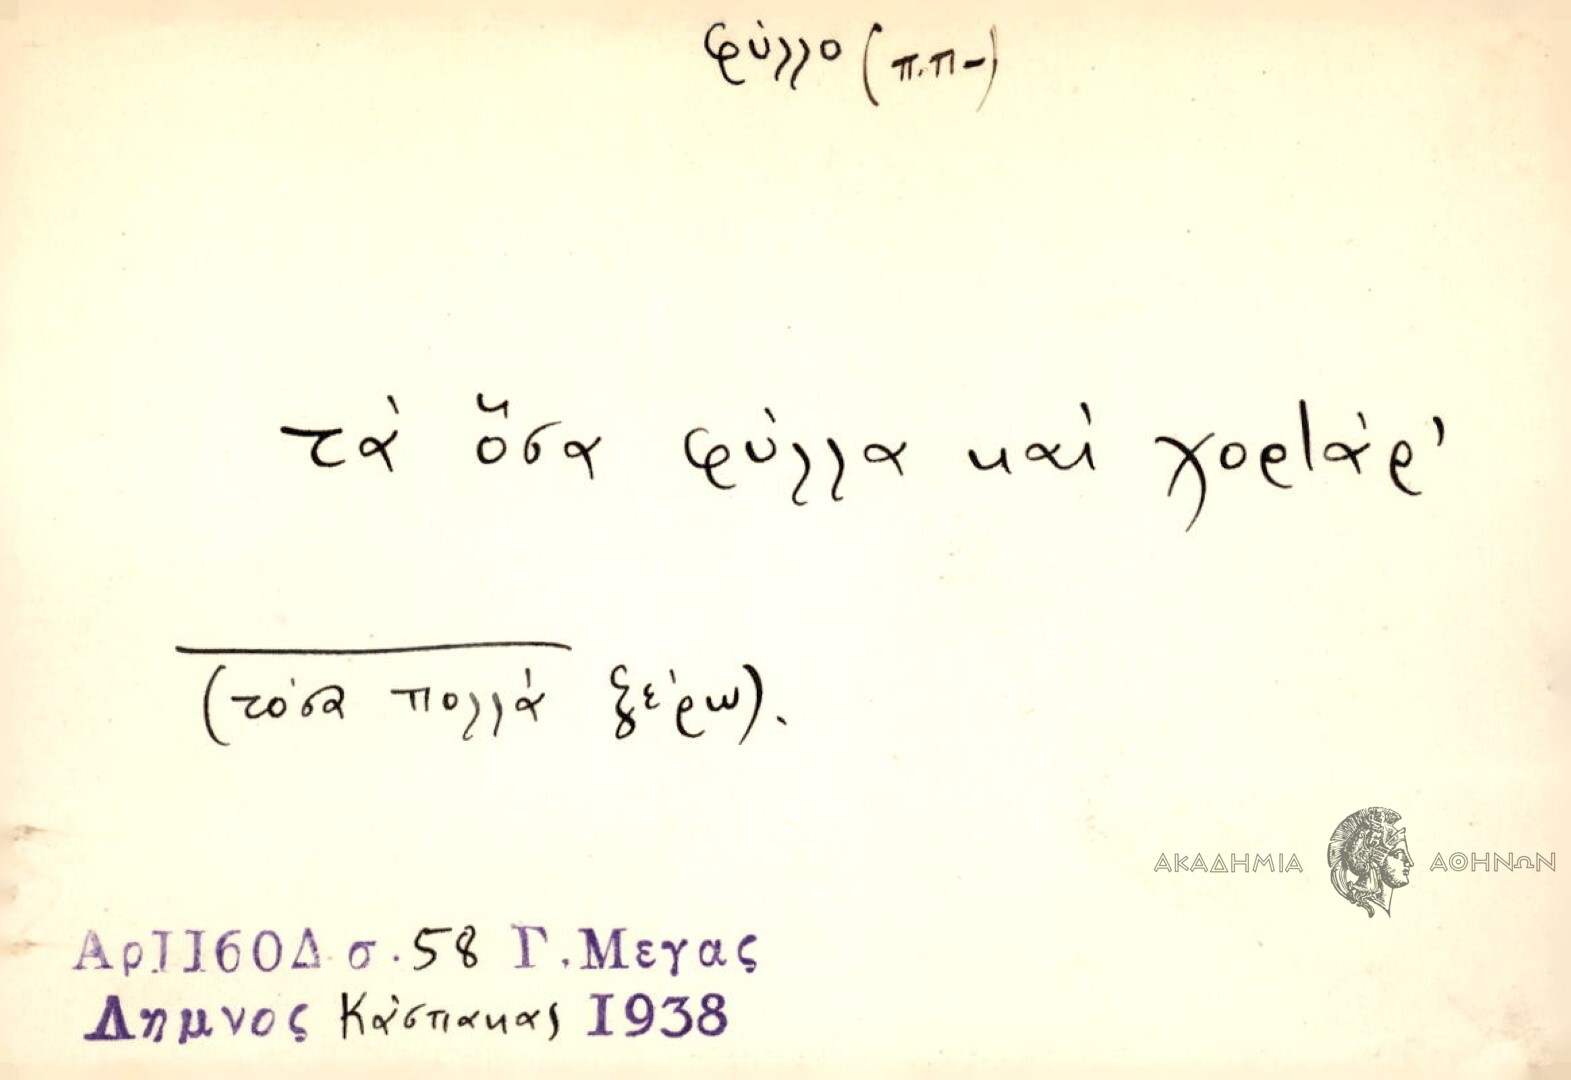 φύλλο (π.π-)
τὰ ὅσα φύλλα καὶ χορτάρ'
(τόσα πολλά ξεύρω).
ΑΚΑΔΗΜΙΑ ΑΘΗΝΩΝ
Αρ1160Δ σ.58 Γ.Μεγας
Λημνος Κάσπακας 1938